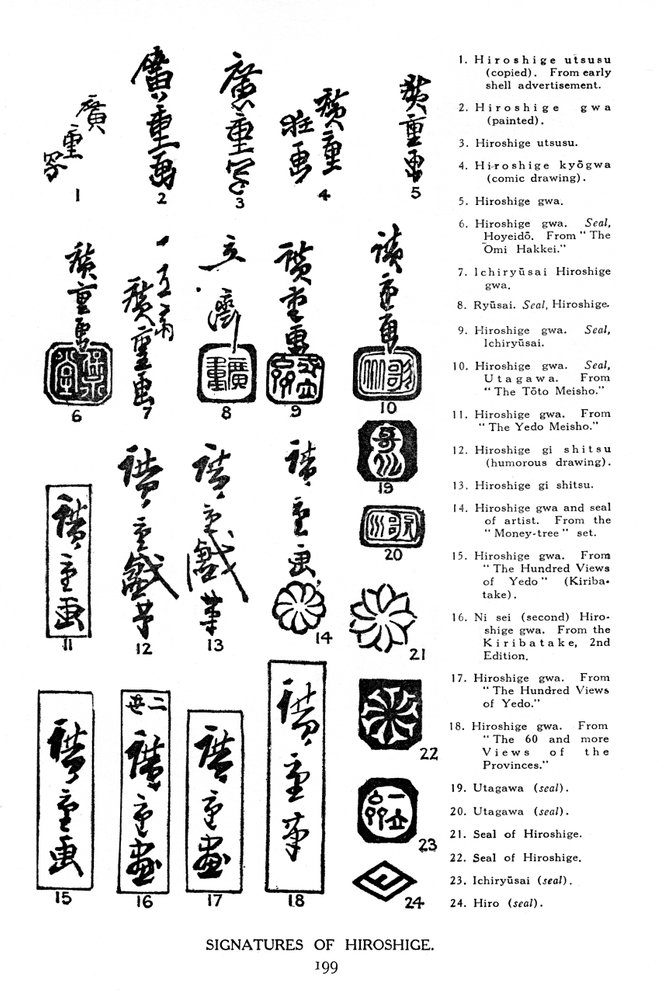 廣重写
1
廣重画
2
廣重写
3
廣重
狂画
4
廣重画
5
廣重画
保永堂
6
一立斎
廣重画
7
立斎
廣重
8
廣重画
一立斎
9
廣重画
歌川
10
廣重画
11
廣重戯筆
12
廣重戯筆
13
廣重画
14
廣重画
15
二世
廣重画
16
廣重画
17
廣重筆
18
歌川
19
歌川
20
21
22
一立斎
23
24
1. Hiroshige utsusu
(copied). From early
shell advertisement.
2. Hiroshige gwa
(painted).
3. Hiroshige utsusu.
4. Hiroshige kyōgwa
(comic drawing).
5. Hiroshige gwa.
6. Hiroshige gwa. Seal,
Hoyeidō. From "The
Ōmi Hakkei."
7. Ichiryūsai Hiroshige
gwa.
8. Ryūsai. Seal, Hiroshige.
9. Hiroshige gwa. Seal,
Ichiryūsai.
10. Hiroshige gwa. Seal,
Utagawa. From
"The Tōto Meisho."
11. Hiroshige gwa. From
"The Yedo Meisho."
12. Hiroshige gi shitsu
(humorous drawing).
13. Hiroshige gi shitsu.
14. Hiroshige gwa and seal
of artist. From the
"Money-tree" set.
15. Hiroshige gwa. From
"The Hundred Views
of Yedo" (Kiriba-
take).
16. Ni sei (second) Hiro-
shige gwa. From the
Kiribatake, 2nd
Edition.
17. Hiroshige gwa. From
"The Hundred Views
of Yedo."
18. Hiroshige gwa. From
"The 60 and more
Views of the
Provinces."
19. Utagawa (seal).
20. Utagawa (seal).
21. Seal of Hiroshige.
22. Seal of Hiroshige.
23. Ichiryūsai (seal).
24. Hiro (seal).
SIGNATURES OF HIROSHIGE.
199